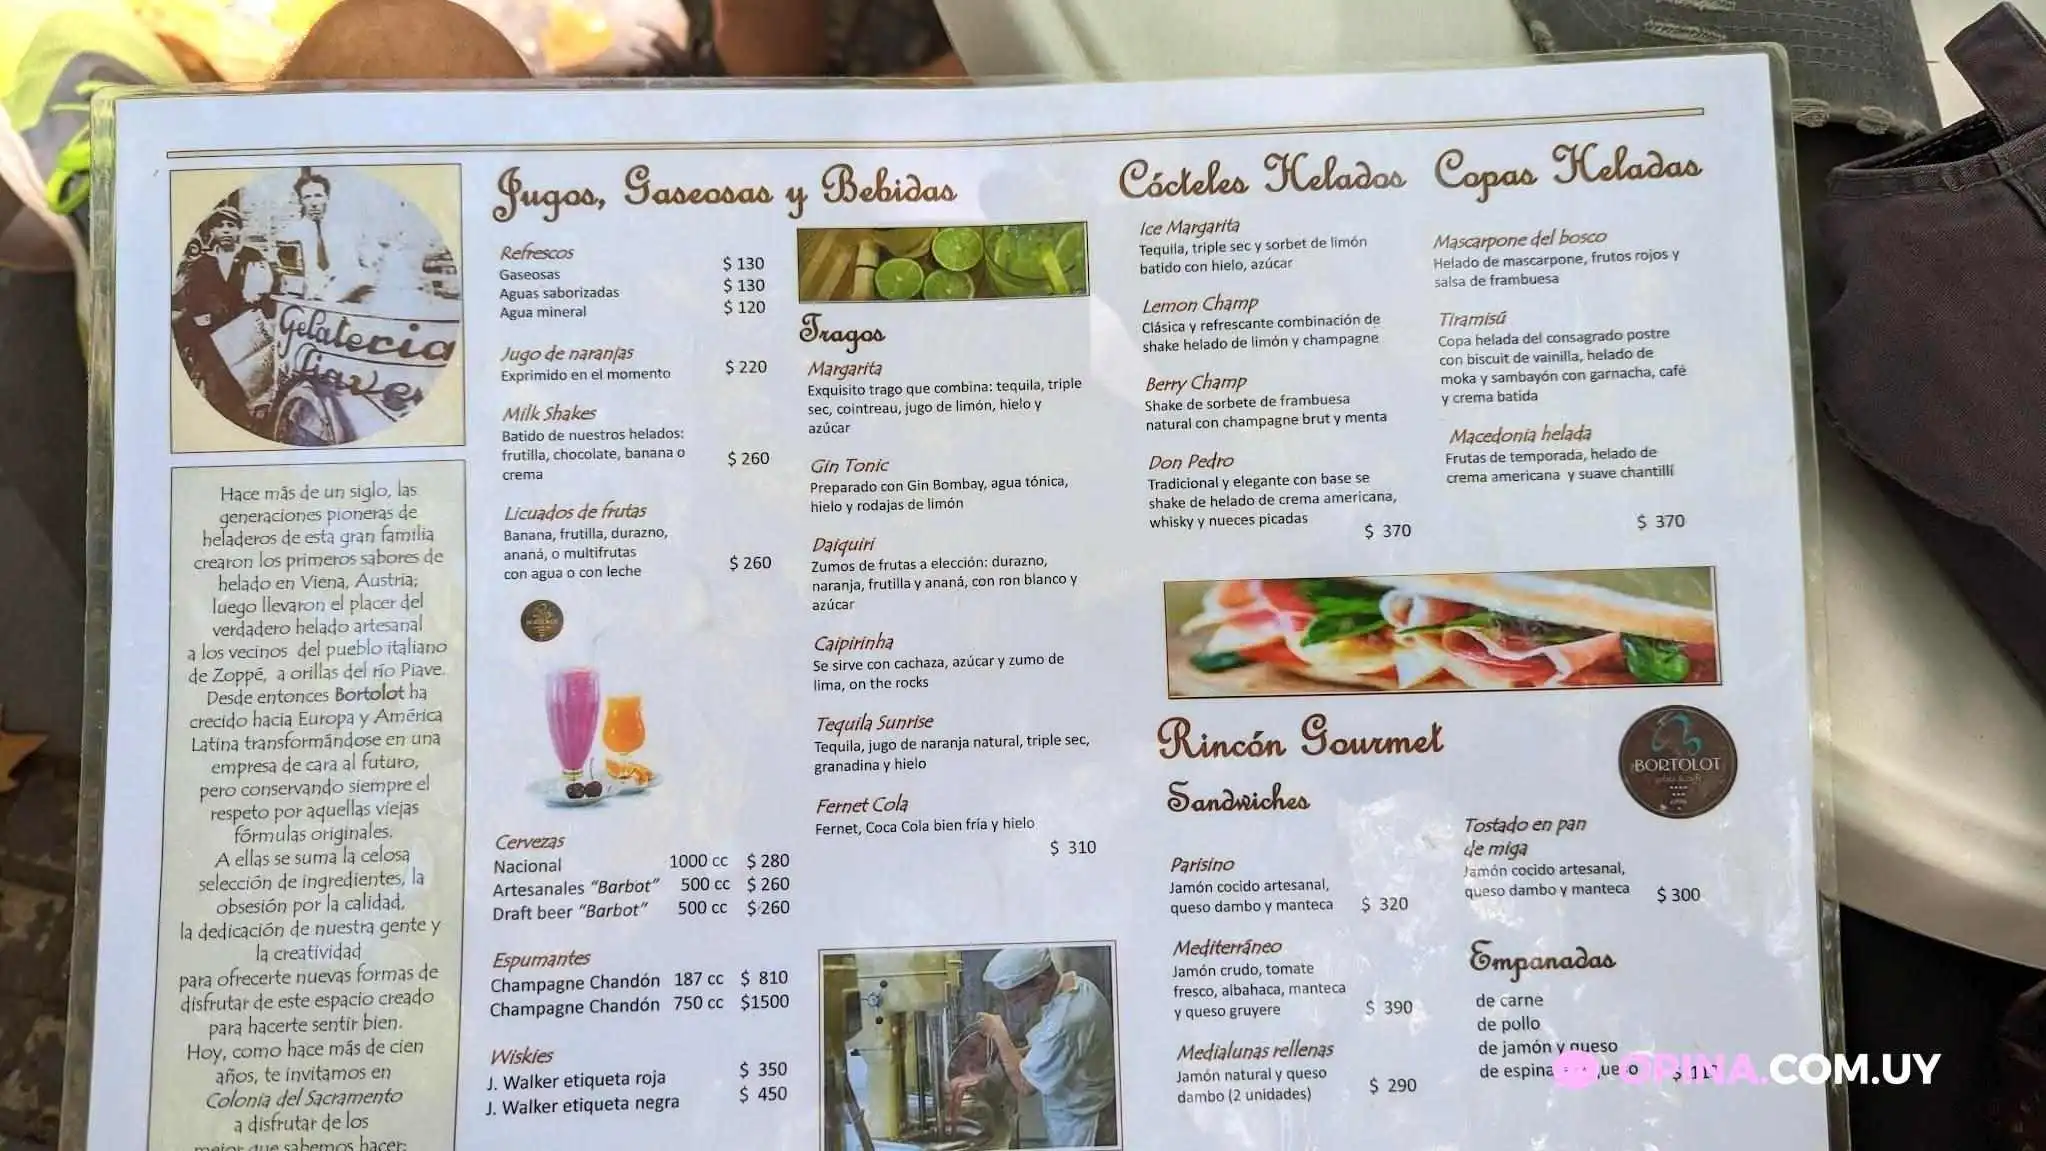 Gelateria
Piave
Hace más de un siglo, las
generaciones pioneras de
heladeros de esta gran familia
crearon los primeros sabores de
helado en Viena, Austria;
luego llevaron el placer del
verdadero helado artesanal
a los vecinos del pueblo italiano
de Zoppé, a orillas del río Piave.
Desde entonces Bortolot ha
crecido hacia Europa y América
Latina transformándose en una
empresa de cara al futuro,
pero conservando siempre el
respeto por aquellas viejas
fórmulas originales.
A ellas se suma la celosa
selección de ingredientes, la
obsesión por la calidad,
la dedicación de nuestra gente y
la creatividad
para ofrecerte nuevas formas de
disfrutar de este espacio creado
para hacerte sentir bien.
Hoy, como hace más de cien
años, te invitamos en
Colonia del Sacramento
a disfrutar de los
mejor que sabemos hacer:
Jugos, Gaseosas y Bebidas
Refrescos
Gaseosas $ 130
Aguas saborizadas $ 130
Agua mineral $ 120
Jugo de naranjas
Exprimido en el momento $ 220
Milk Shakes
Batido de nuestros helados:
frutilla, chocolate, banana o $ 260
crema
Licuados de frutas
Banana, frutilla, durazno,
ananá, o multifrutas
con agua o con leche $ 260
Cervezas
Nacional 1000 cc $ 280
Artesanales "Barbot" 500 cc $ 260
Draft beer "Barbot" 500 cc $ 260
Espumantes
Champagne Chandón 187 cc $ 810
Champagne Chandón 750 cc $1500
Wiskies
J. Walker etiqueta roja $ 350
J. Walker etiqueta negra $ 450
Tragos
Margarita
Exquisito trago que combina: tequila, triple
sec, cointreau, jugo de limón, hielo y
azúcar
Gin Tonic
Preparado con Gin Bombay, agua tónica,
hielo y rodajas de limón
Daiquiri
Zumos de frutas a elección: durazno,
naranja, frutilla y ananá, con ron blanco y
azúcar
Caipirinha
Se sirve con cachaza, azúcar y zumo de
lima, on the rocks
Tequila Sunrise
Tequila, jugo de naranja natural, triple sec,
granadina y hielo
Fernet Cola
Fernet, Coca Cola bien fría y hielo
$ 310
Cócteles Helados
Ice Margarita
Tequila, triple sec y sorbet de limón
batido con hielo, azúcar
Lemon Champ
Clásica y refrescante combinación de
shake helado de limón y champagne
Berry Champ
Shake de sorbete de frambuesa
natural con champagne brut y menta
Don Pedro
Tradicional y elegante con base se
shake de helado de crema americana,
whisky y nueces picadas
$ 370
Copas Heladas
Mascarpone del bosco
Helado de mascarpone, frutos rojos y
salsa de frambuesa
Tiramisú
Copa helada del consagrado postre
con biscuit de vainilla, helado de
moka y sambayón con garnacha, café
y crema batida
Macedonia helada
Frutas de temporada, helado de
crema americana y suave chantillí
$ 370
Rincón Gourmet
BORTOLOT
Sandwiches
Parisino
Jamón cocido artesanal,
queso dambo y manteca $ 320
Mediterráneo
Jamón crudo, tomate
fresco, albahaca, manteca
y queso gruyere $ 390
Medialunas rellenas
Jamón natural y queso
dambo (2 unidades) $ 290
Tostado en pan
de miga
Jamón cocido artesanal,
queso dambo y manteca $ 300
Empanadas
de carne
de pollo
de jamón y queso
de espina
OPINA.COM.UY